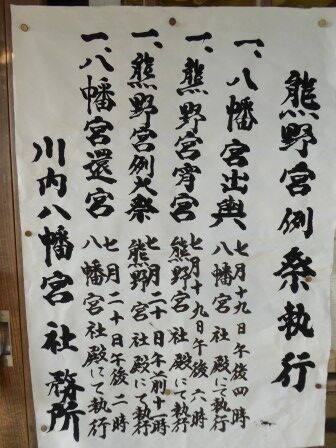 熊野宮例祭執行
一、八幡宮出輿
七月十九日午後四時
八幡宮社殿にて執行
一、熊野宮宵宮
七月十九日午後六時
熊野宮社殿にて執行
一、熊野宮例大祭
七月二十日午前十一時
熊野宮社殿にて執行
一、八幡宮還宮
七月二十日午後二時
八幡宮社殿にて執行
川内八幡宮社務所